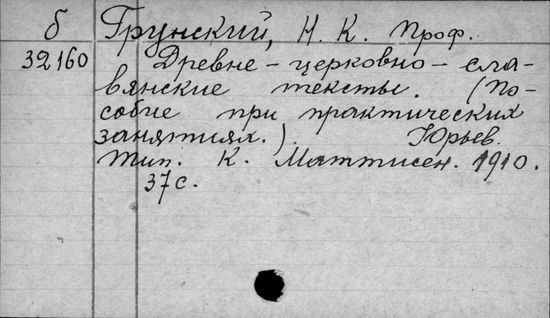 б Грунский, Н. К. Проф.
32160 Древне-церковно-сла-
вянские тексты. (По-
собие при практических
занятиях.) Юрьев.
тип. К. Маттисен. 1910.
37 с.